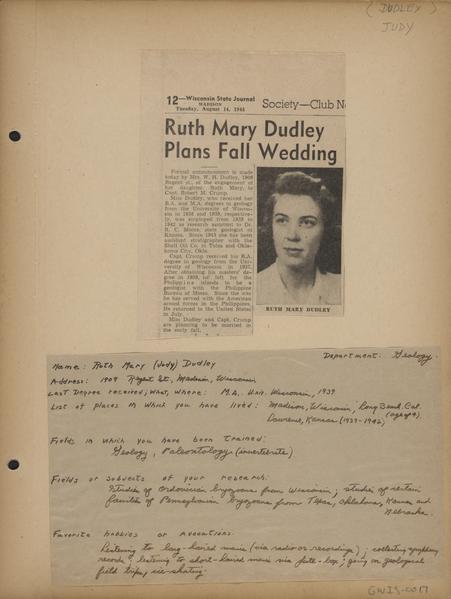 (DUDLEY)
JUDY
12—Wisconsin State Journal
MADISON
Tuesday, August 14, 1945
Society—Club N
Ruth Mary Dudley
Plans Fall Wedding
Formal announcement is made
today by Mrs. W. H. Dudley, 1909
Regent st., of the engagement of
her daughter, Ruth Mary, to
Capt. Robert M. Crump.
Miss Dudley, who received her
B.A. and M.A. degrees in geology
from the University of Wiscon-
sin in 1938 and 1939, respective-
ly, was employed from 1939 to
1942 as research assistant to Dr.
R. C. Moore, state geologist of
Kansas. Since 1943 she has been
assistant stratigrapher with the
Shell Oil Co. in Tulsa and Okla-
homa City, Okla.
Capt. Crump received his B.A.
degree in geology from the Uni-
versity of Wisconsin in 1937.
After obtaining his masters' de-
gree in 1938, he left for the
Philippine islands to be a
geologist with the Philippine
Bureau of Mines. Since the war
he has served with the American
armed forces in the Philippines.
He returned to the United States
in July.
Miss Dudley and Capt. Crump
are planning to be married in
the early fall.
RUTH MARY DUDLEY
Department: Geology.
Name: Ruth Mary (Judy) Dudley
Address: 1909 Regent St., Madison, Wisconsin
Last Degree received; what, where: M.A. Univ. Wisconsin, 1939
List of places in which you have lived: Madison, Wisconsin; Long Beach, Cal.
Lawrence, Kansas (1939-1942)
Fields in which you have been trained:
Geology, Paleontology (invertebrate)
Fields or subjects of your research:
Studies of Ordovician bryozoans from Wisconsin; studies of certain
families of Pennsylvanian bryozoans from Texas, Oklahoma, Kansas, and
Nebraska.
Favorite hobbies or avocations:
Listening to long-haired music (via radio or recordings); collecting symphony
records; listening to short-haired music via juke-box; going on geological
field trips; ice-skating.
GNIS-0017